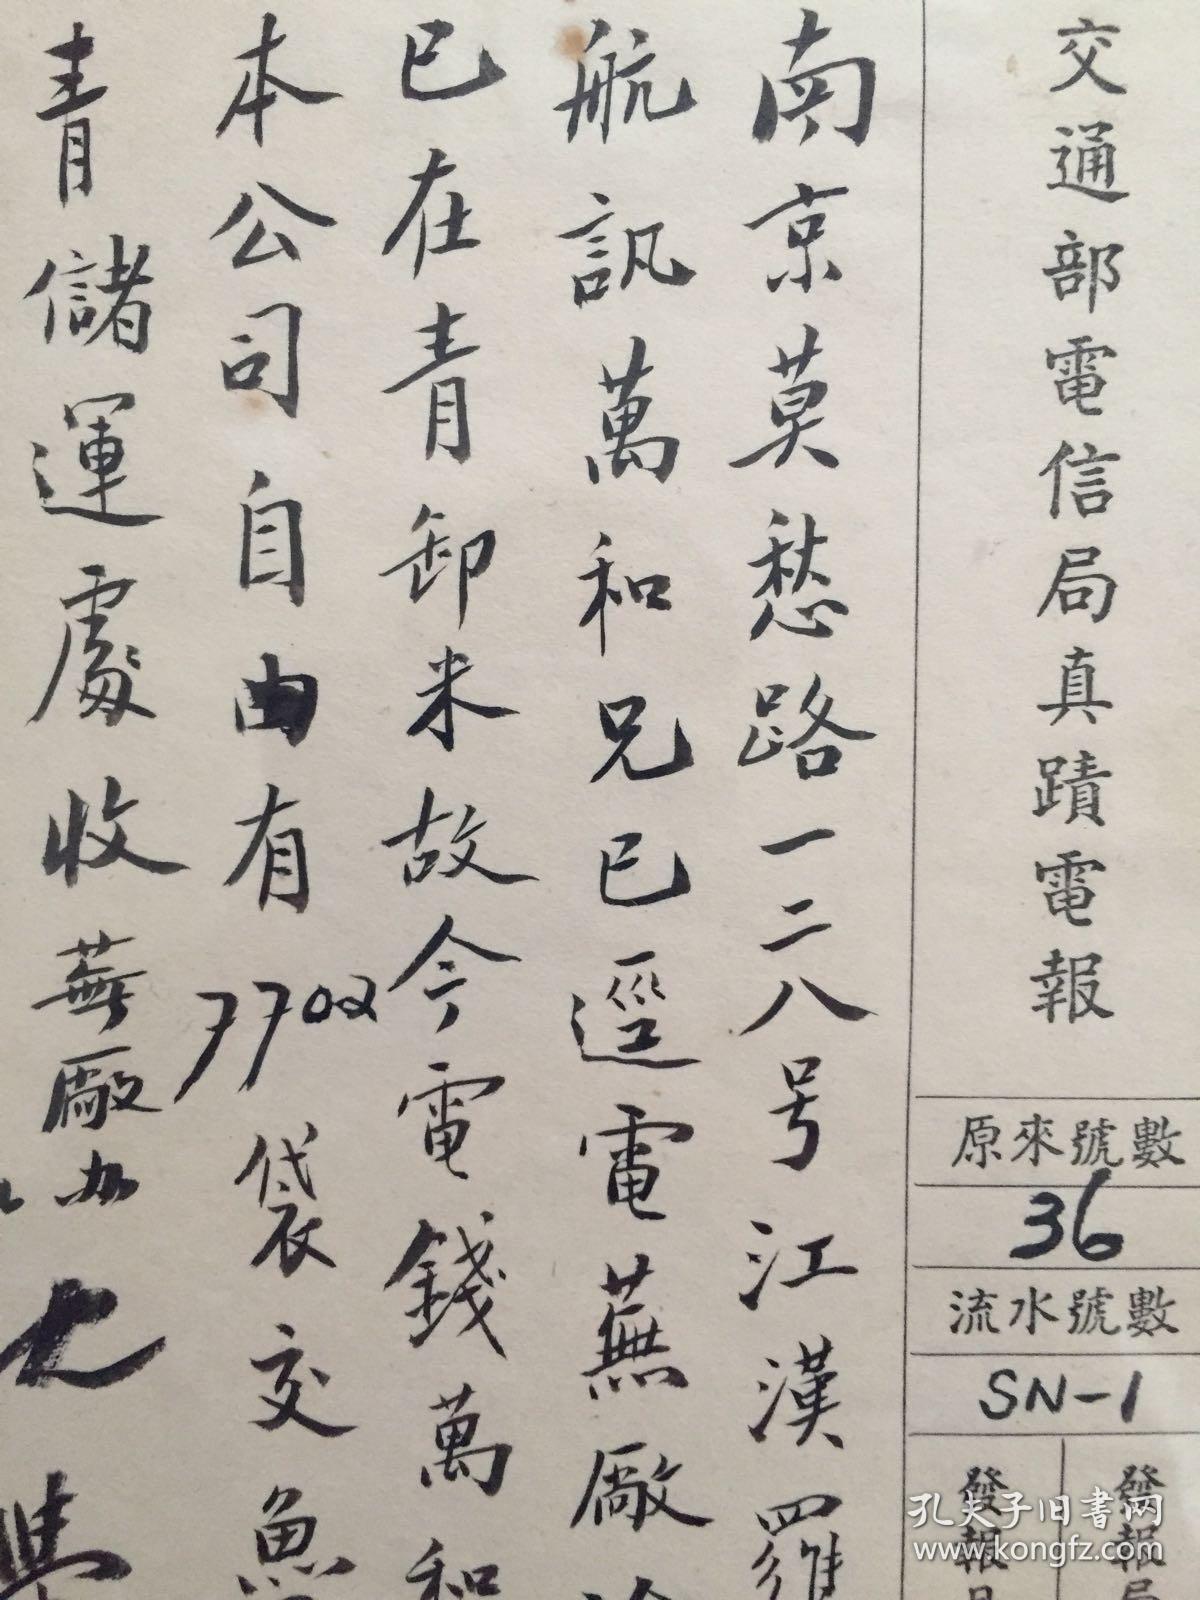 交通部電信局真蹟電報
原來號數
36
流水號數
SN-1
發報局
發報日
南京莫愁路一二八号江漢羅
航訊萬和兄已逕電蕪廠
已在青卸米故今電錢萬和
本公司自由有7702袋交魚
青儲運處收蕪廠办
孔夫子旧书网
www.kongfz.com